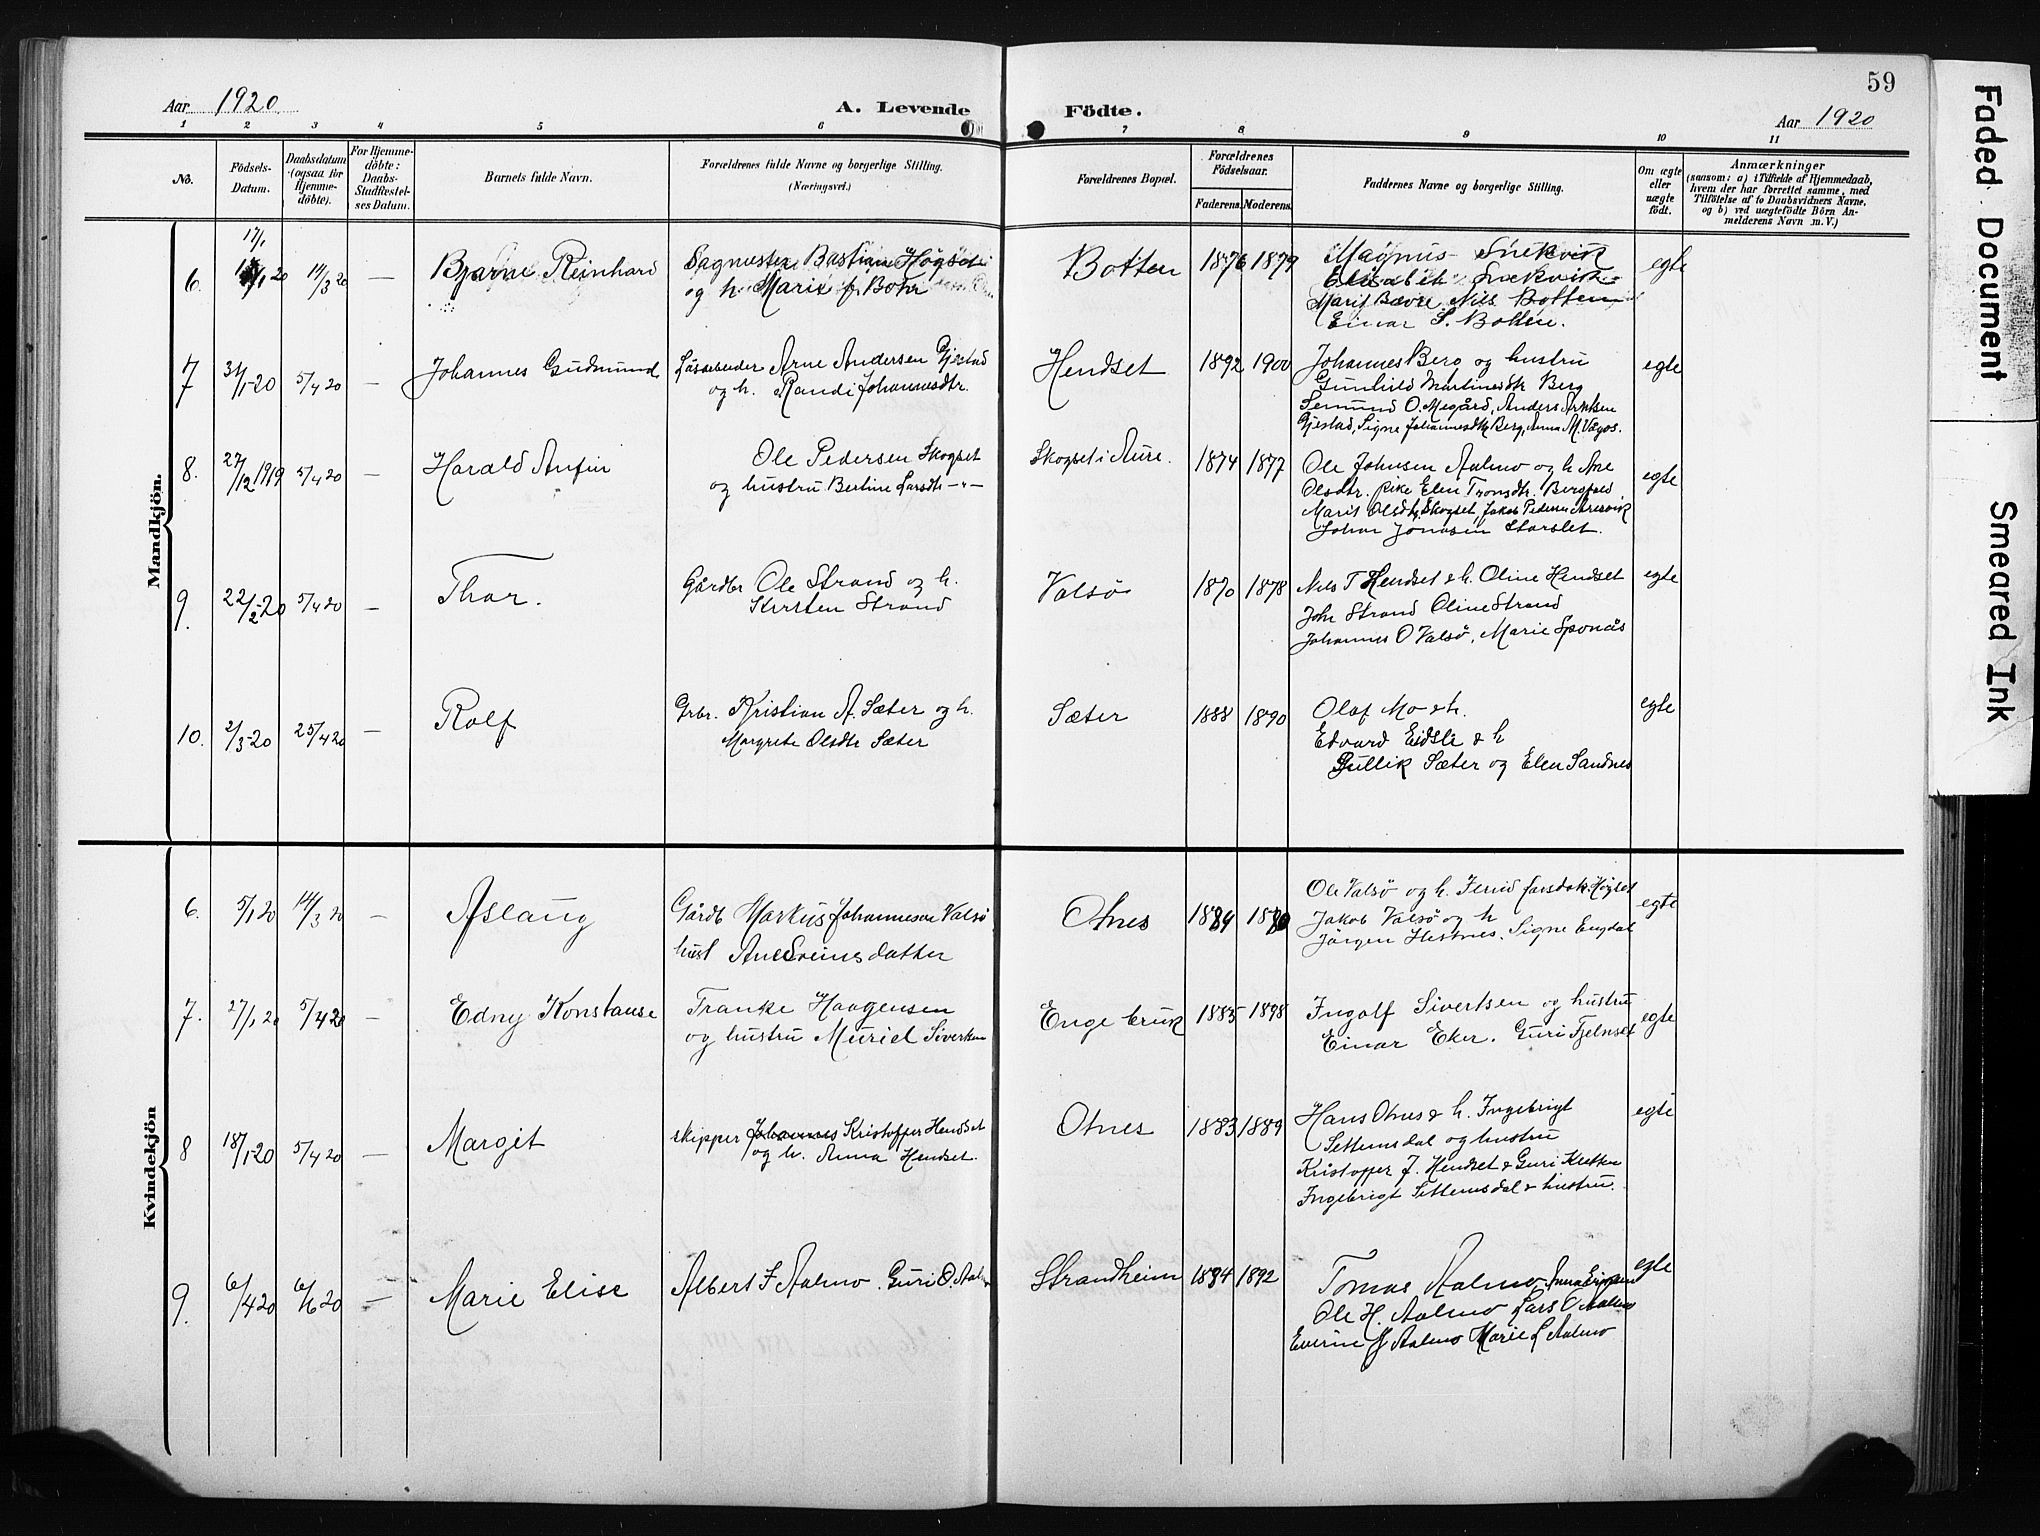 59
Aar 1920
A. Levende
Födte.
Aar 1920
1 2 3 4 5 6 7 8 9 10 11
No.
Födsels-
Datum.
Daabsdatum
(ogsaa for
Hjemme-
döbte).
For Hjemme-
döbte:
Daabs-
Stadfestel-
ses Datum.
Barnets fulde Navn.
Forældrenes fulde Navne og borgerlige Stilling.
(Næringsvei.)
Forældrenes Bopæl.
Forældrenes
Födselsaar.
Faderens. Moderens.
Faddernes Navne og borgerlige Stilling.
Om ægte
eller
uægte
födt.
Anmærkninger
(saasom: a) i Tilfælde af Hjemmedaab,
hvem der har forrettet samme, med
Tilföielse af to Daabsvidners Navne,
og b) ved uægtefödte Börn An-
melderens Navn m. V.)
Mandkjön.
6. 17/1 20 14/3 20 — Bjarne Reinhard
Sagmester Bastian Högset
og h. Marie f. Bohr
Botten 1876 1879
Magnus Snekvik
Elisabet Snekvik
Marit Bævre Nils Botten
Einar S. Botten.
egte
7 31/1-20 5/4 20 — Johannes Gudmund
Arne Andersen Gjestad
og h. Randi Johannesdtr.
Hendset 1892 1900
Johannes Berg og hustru
Gunhild Martinesdtr Berg
Semund O. Megård, Anders Arntsen
Gjestad, Signe Johannesdtr Berg, Anna M. Vågos.
egte
8. 27/12 1919 5/4 20 — Harald Anfin
Ole Pedersen Skogset
og hustru Bertine Larsdtr —"—
Skogset i Aure. 1874 1877
Ole Johnsen Aalmo og h. Ane
Olsdtr. pike Elen Tronsdtr. Bergfald
Marit Olsdtr Skogset, Jakob Pedersen Aresvik
Johan Jonasen Storslet.
egte
9. 22/2-20 5/4 20 — Thor.
Gårdbr Ole Strand og h.
Kirsten Strand
Valsö 1870 1878
Nils T Hendset & h. Oline Hendset
Joh Strand Oline Strand
Johannes O Valsö, Marie Sponås
egte
10. 2/3-20 25/4 20 — Rolf
Grbr. Kristian A. Sæter og h.
Margrete Olsdtr Sæter
Sæter 1888 1890
Olaf Mo & h.
Edvard Eidsli & h
Gullik Sæter og Elen Sandnes
egte
Kvindekjön
6. 5/1 20 14/3 20 — Aslaug
Gårdb Markus Johannesen Valsö
hust Ane Sveinsdatter
Otnes 1884 1880
Ole Valsö og h. Larsdatr. Högset
Jakob Valsö og h
Jörgen Hestnes. Signe Engdal
egte
7. 27/1 20 5/4 20 — Edny Konstanse
Franke Haagensen
og hustru Muriel Sivertsen
Engebruk 1885 1898
Ingolf Sivertsen og hustru
Einar Eker. Guri Fjelnset
egte
8 18/1-20 5/4 20 — Margit
skipper Johannes Kristoffer Hendset
og h. Anna Hendset.
Otnes 1883 1889
Hans Otnes & h. Ingebrigt
Settemsdal og hustru
Kristoffer J. Hendset & Guri Kletten
Ingebrigt Settemsdal & hustru.
egte
9. 6/4 20 6/6 20 — Marie Elise
Albert F Aalmo. Guri O. Aalmo
Strandheim 1884 1892
Tomas Aalmo
Ole H. Aalmo Lars O Aalmo
Everine J Aalmo Marie L Aalmo
egte
Faded Document
Smeared Ink